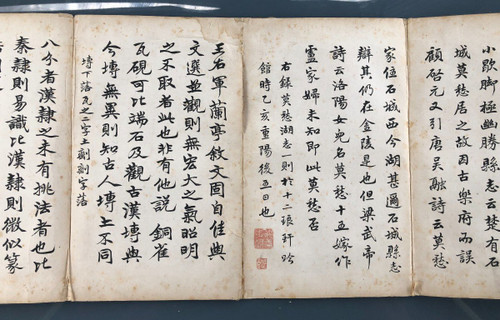 小歇脚極幽勝縣志云楚有石
城莫愁居之故因古樂府而誤
顧啓元又引唐吳融詩云莫愁
家住石城西今湖甚邇石城縣志
辯其仍在金陵是也但梁武帝
詩云洛陽女兒名莫愁十五嫁作
盧家婦未知即此莫愁否
右錄莫愁湖志一則於十二琅玕吟
館時乙亥重陽後五日也
王右軍蘭亭敘文固自佳與
文選並觀則無宏大之氣昭明
之不取者此也非有他說 銅雀
瓦硯可比端石及觀古漢塼與
今塼無異則知古人塼土不同
塼下落瓦之二字土劑劑字落
八分者漢隸之未有挑法者也比
秦隸則易識比漢隸則微似篆